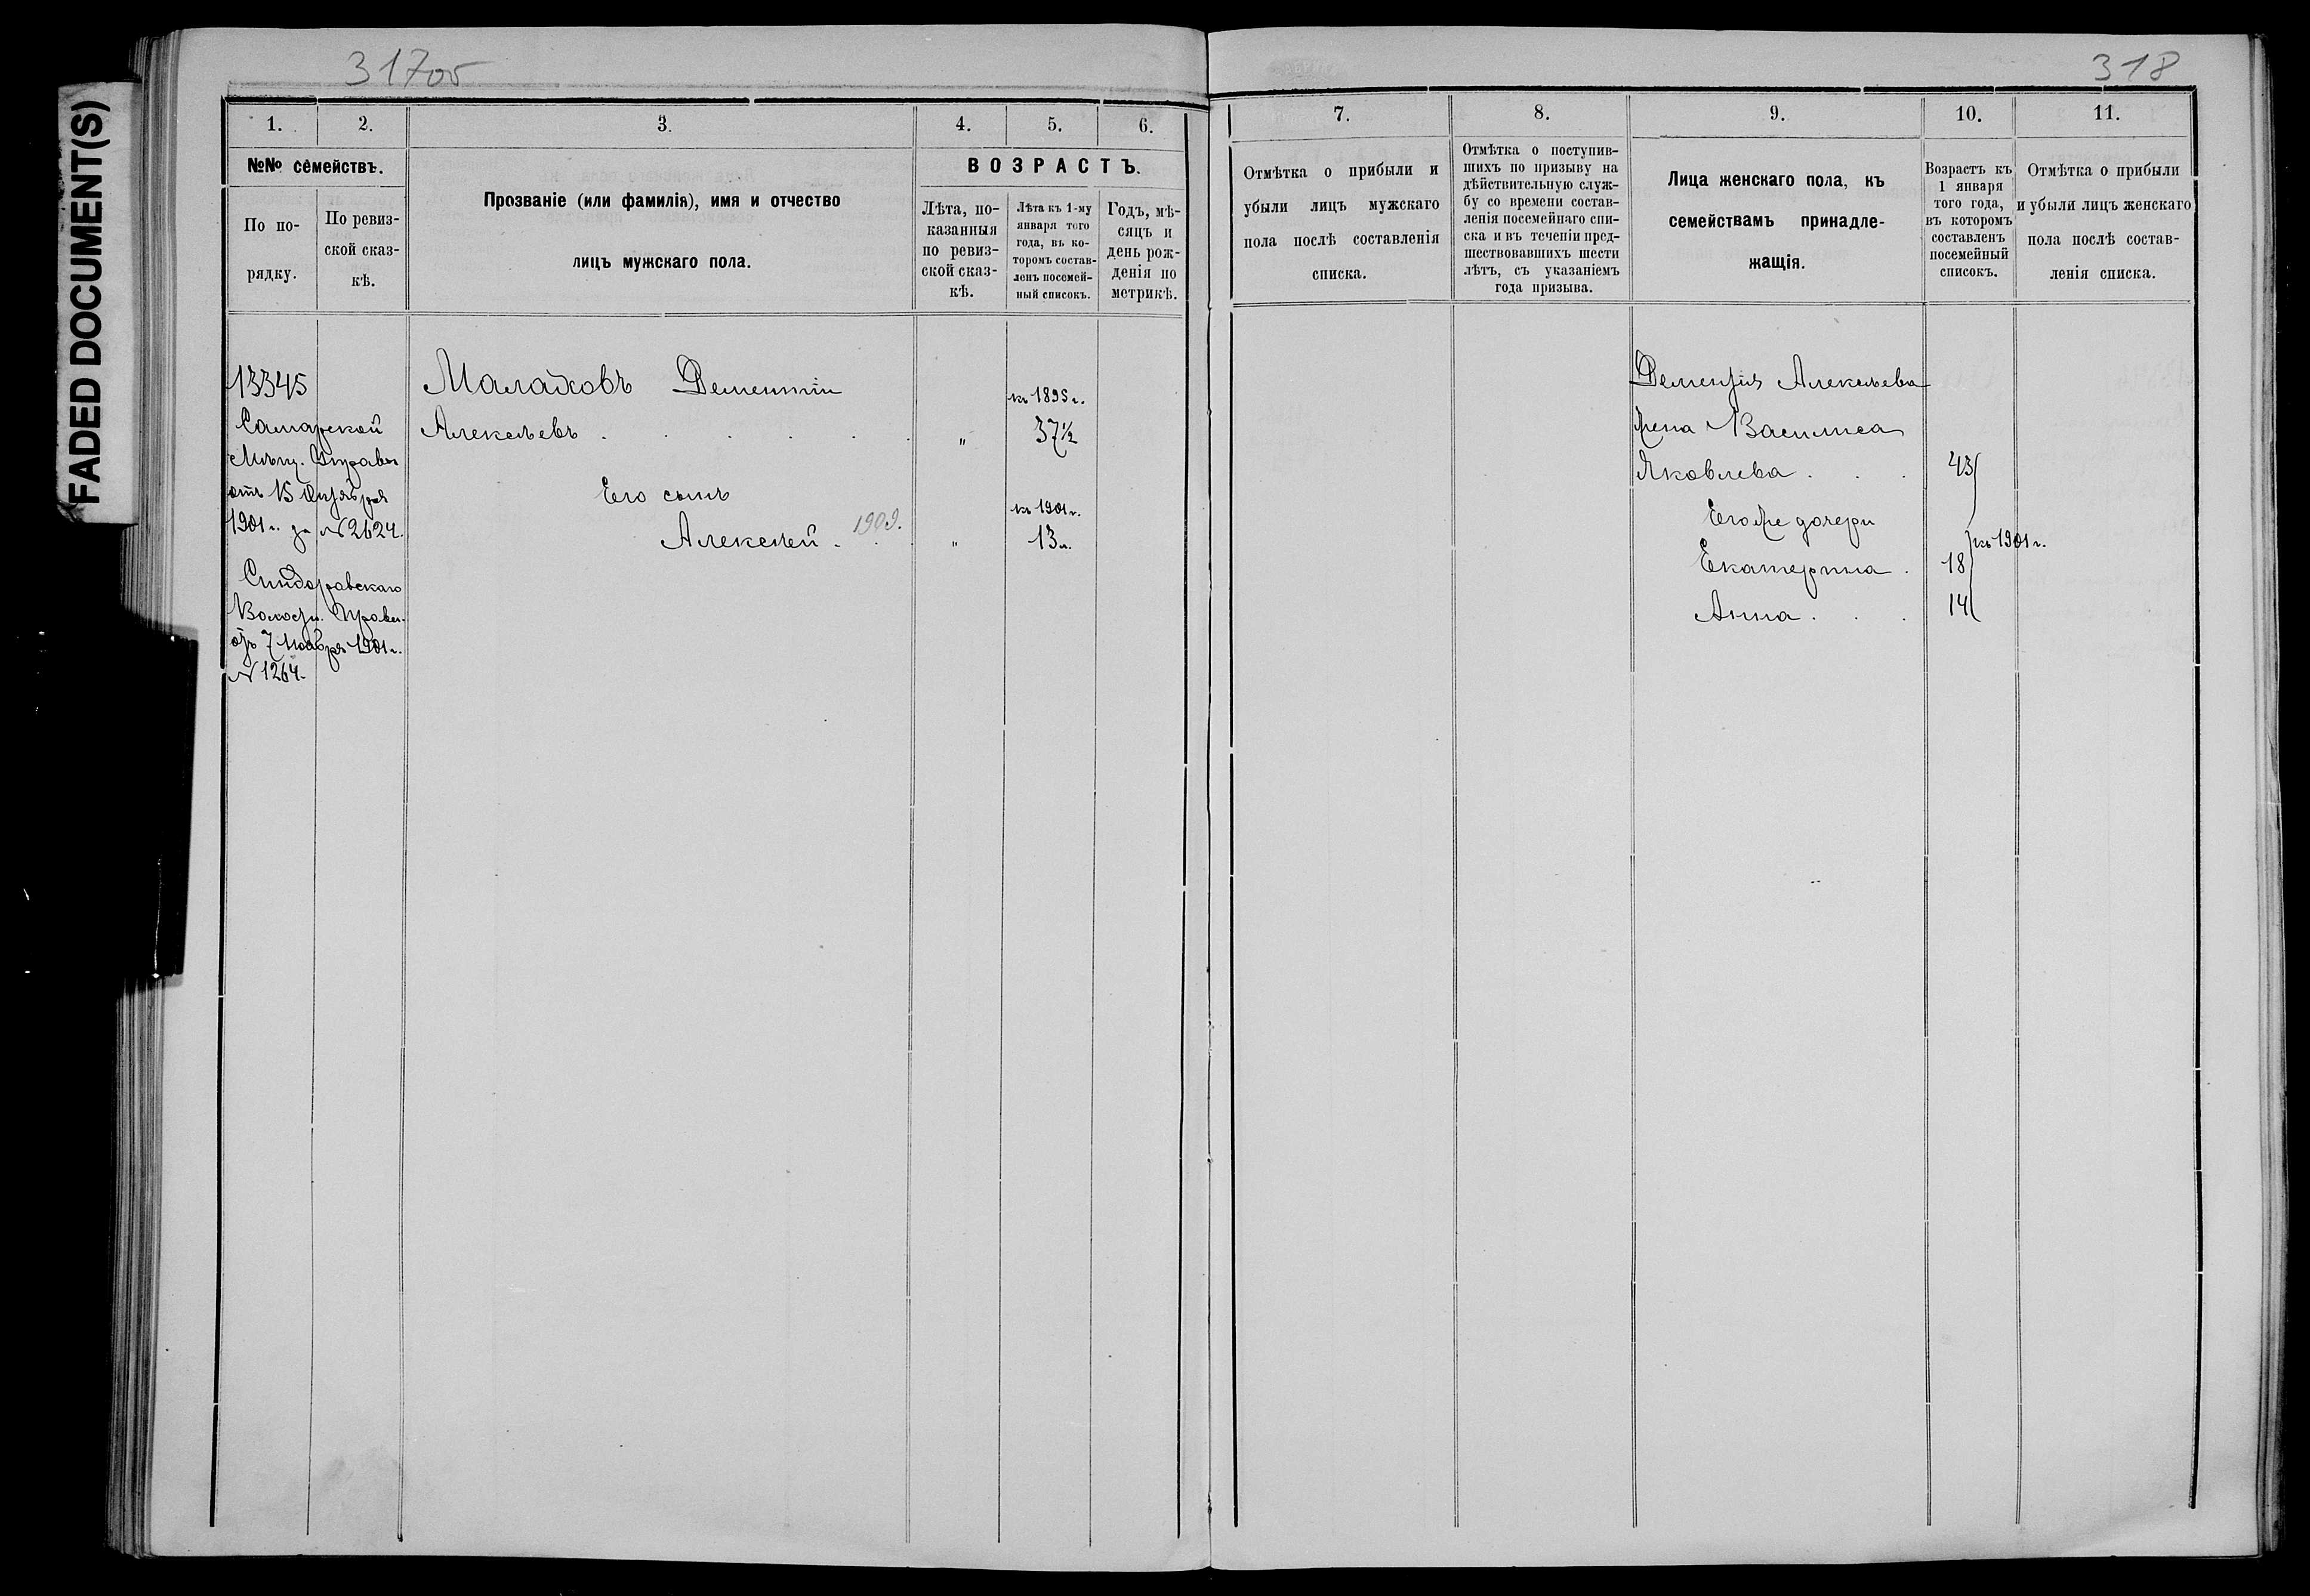 FADED DOCUMENT(S)
317об
1.
2.
3.
4.
5.
6.
№№ семействъ.
ВОЗРАСТЪ.
По по-
рядку.
По ревиз-
ской сказ-
кѣ.
Прозваніе (или фамилія), имя и отчество
лицъ мужскаго пола.
Лѣта, по-
казанныя
по ревиз-
ской сказ-
кѣ.
Лѣта къ 1-му
января того
года, въ ко-
торомъ состав-
ленъ посемей-
ный списокъ.
Годъ, мѣ-
сяцъ и
день рож-
денія по
метрикѣ.
13345
Самарской
Мѣщ. Управы
отъ 15 Октября
1901 г. за №2624.
Волостн. Правл.
отъ 7 Ноября 1901 г.
№ 1264.
Малаховъ Дементiй
Алексѣевъ . . . . .
Его сынъ
Алексѣй . 1909.
"
"
къ 1895 г.
37½
къ 1901 г.
13 л.
318
7.
8.
9.
10.
11.
Отмѣтка о прибыли и
убыли лицъ мужскаго
пола послѣ составленія
списка.
Отмѣтка о поступив-
шихъ по призыву на
дѣйствительную служ-
бу со времени состав-
ленія посемейнаго спи-
ска и въ теченіи пред-
шествовавшихъ шести
лѣтъ, съ указаніемъ
года призыва.
Лица женскаго пола, къ
семействамъ принадле-
жащія.
Возрастъ къ
1 января
того года,
въ которомъ
составленъ
посемейный
списокъ.
Отмѣтка о прибыли
и убыли лицъ женскаго
пола послѣ состав-
ленія списка.
Дементiя Алексѣева
жена Василиса
Яковлева . . . 43
Его же дочери
къ 1901 г.
Екатерина . 18
Анна . . . 14